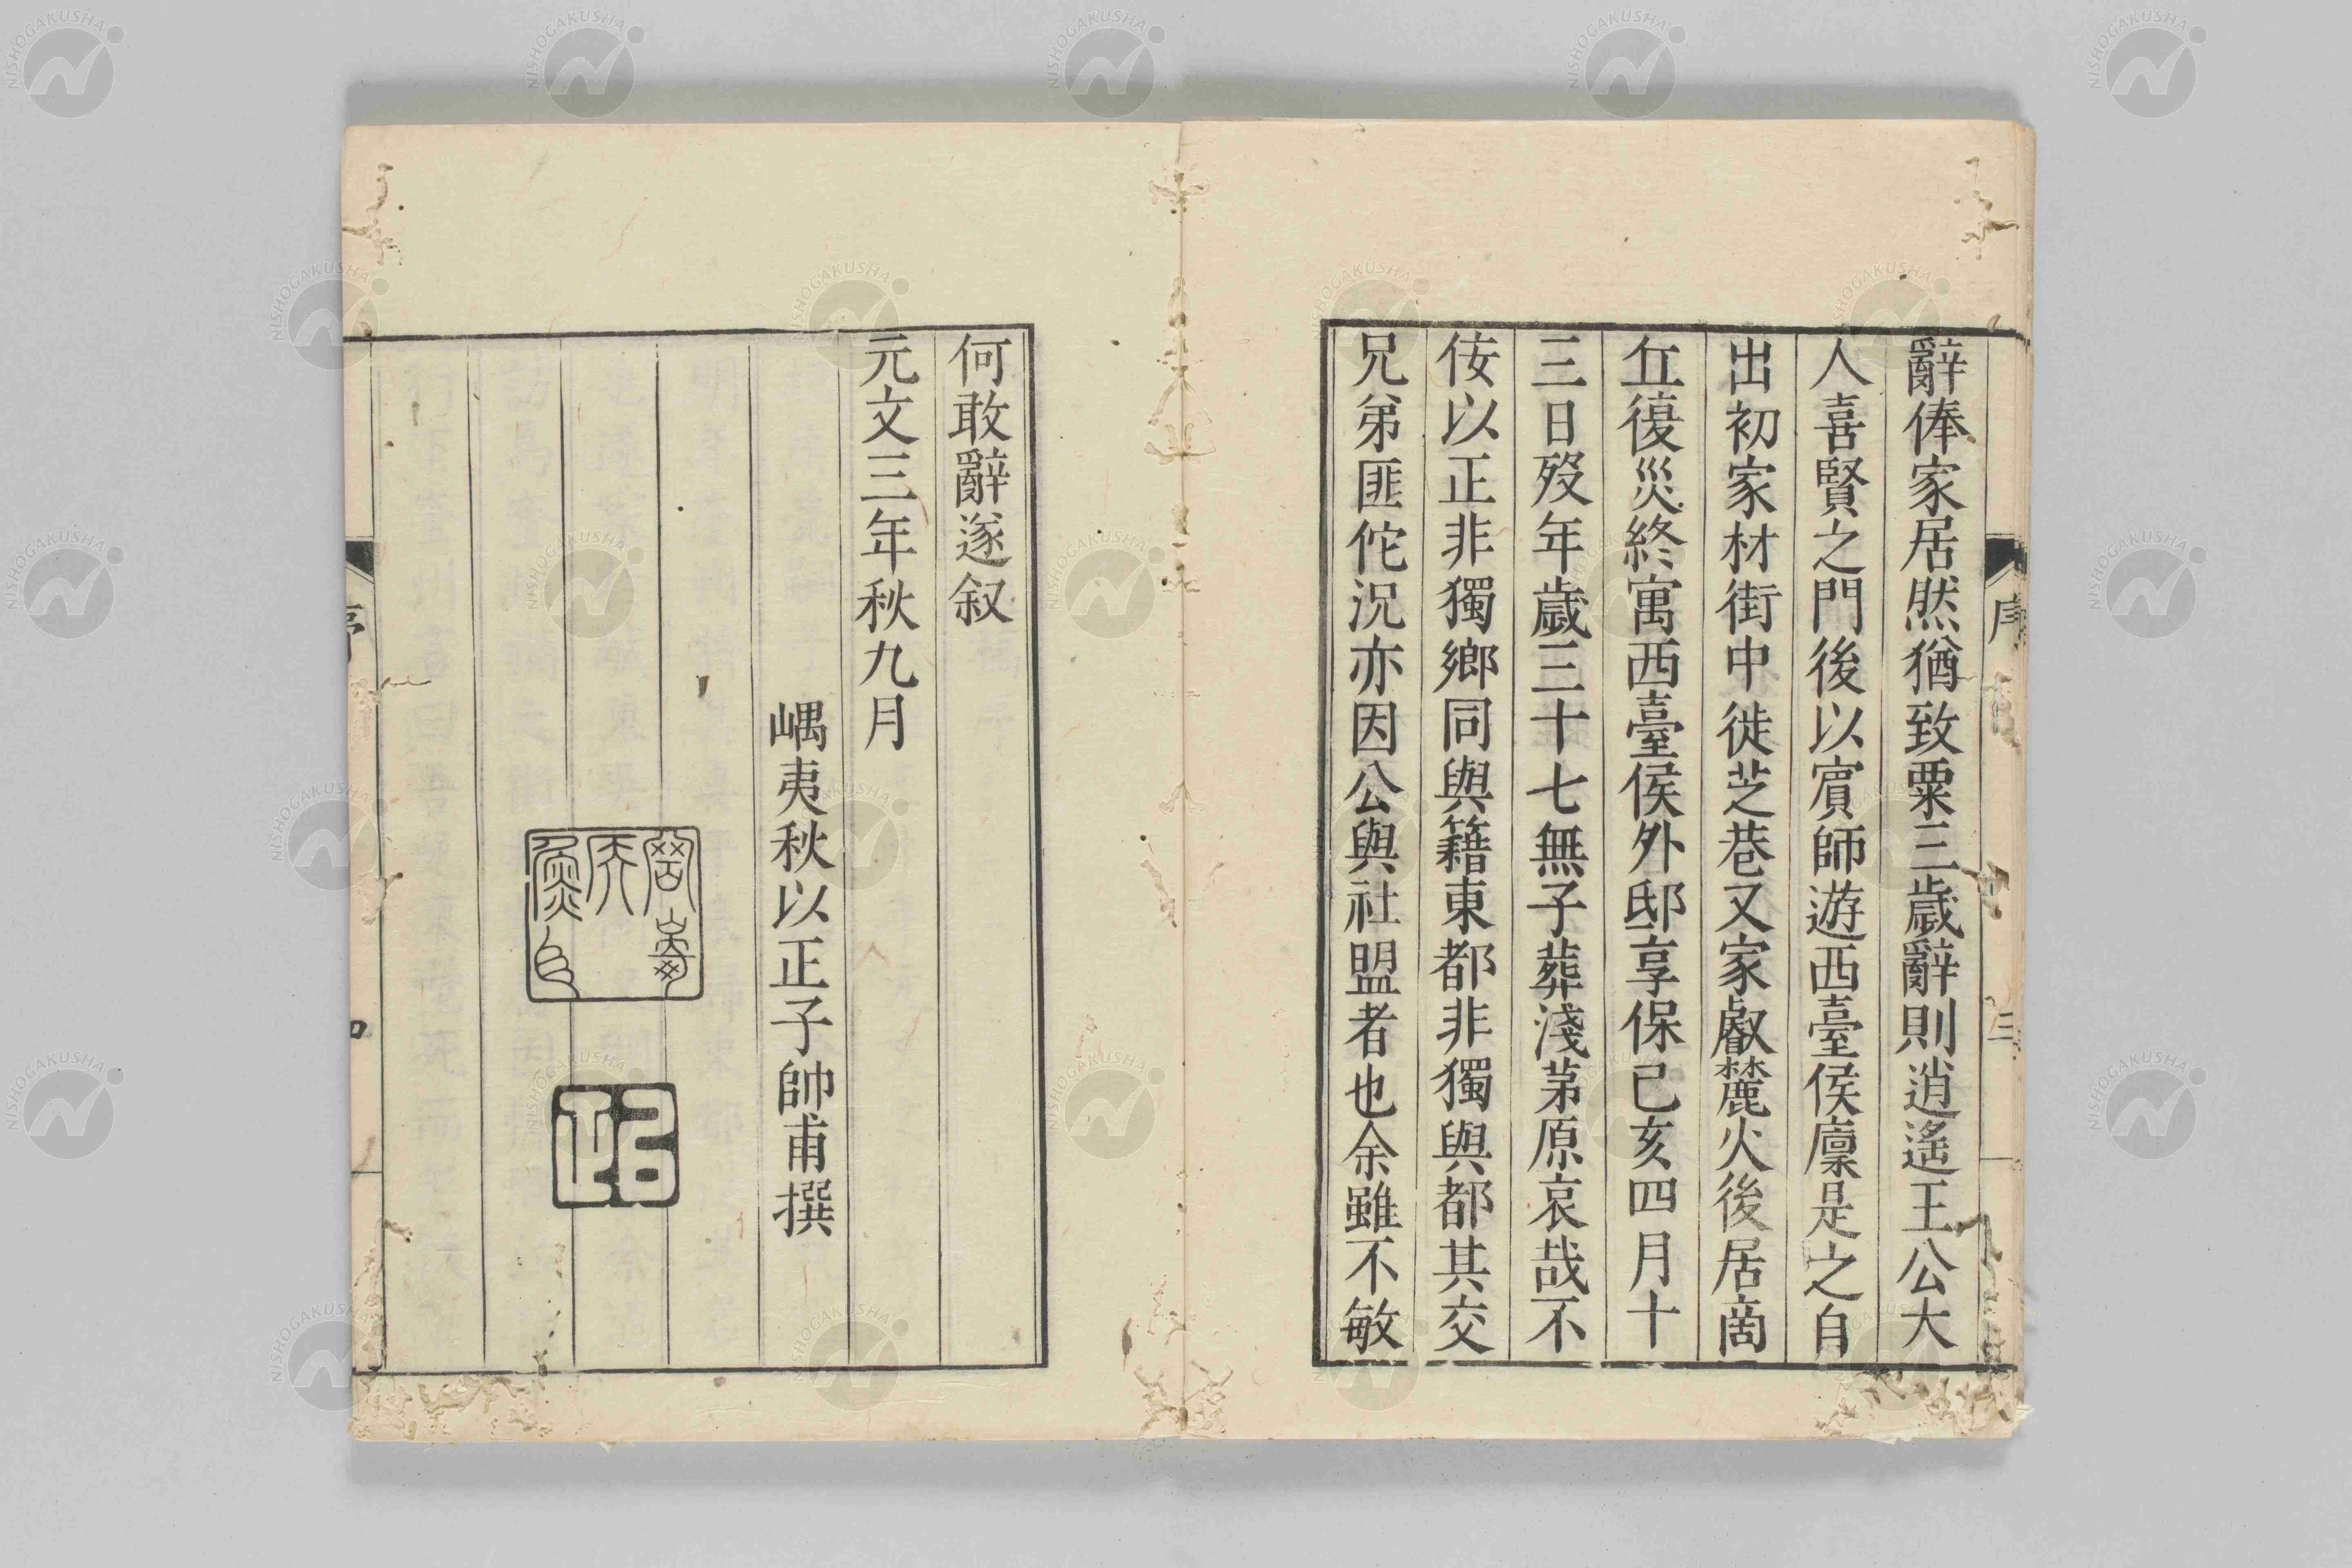 辭俸家居然猶致粟三歲辭則逍遙王公大
人喜賢之門後以賓師遊西臺侯廩是之自
出初家材街中徙芝巷又家叡麓火後居啇
丘復災終寓西臺侯外邸享保己亥四月十
三日歿年歲三十七無子葬淺茅原哀哉不
佞以正非獨鄉同與籍東都非獨與都其交
兄弟匪佗況亦因公與社盟者也余雖不敏
何敢辭遂叙
元文三年秋九月
嵎夷秋以正子帥甫撰
序
三
NISHOGAKUSHA